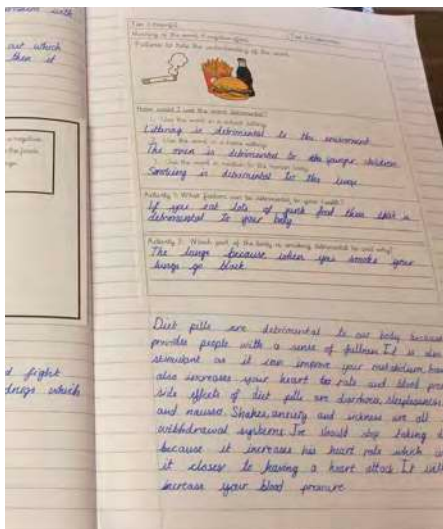 out which
then it
Pictures to help the understanding of the word
How could I use the word detrimental?
1. Use the word in a school setting
Littering is detrimental to the enviroment
2. Use the word in a home setting
The oven is detrimental to the younger children
3. Use the word in relation to the human body
Smoking is detrimental to the lungs
Activity 1: What factors can be detrimental to your health?
If you eat lots of junk food then that is
detrimental to your body
Activity 2: Which part of the body is smoking detrimental to and why?
The lungs because when you smoke your
lungs go black
Diet pills are detrimental to our body because
provides people with a sense of fullness. It is also
stimulant as it can improve your metabolism, how
also increases your heart rate and blood pre
side effects of diet pills are diarrhoea, sleeplessness
and nausea. Shakes, anxiety and sickness are all
withdrawal Joe should stop taking
because it increases his heart rate which
it closer to having a heart attack. It will
increase your blood pressure
d fight
drugs which